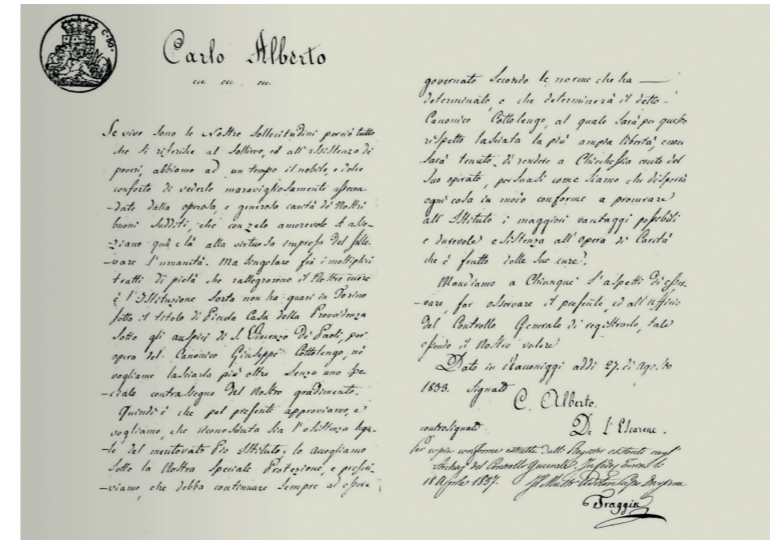 Carlo Alberto
ecc. ecc. ecc.
Se vive sono le Nostre Sollecitudini perciò tutto
che si riferisce al Sollievo, ed all'assistenza di
poveri, abbiamo ad un tempo il nobile, e dolce
conforto di vederle maravigliosamente assecon
-date dalla operosa, e generosa carità de' Nostri
buoni Sudditi, che con zelo amorevole si asso-
-ziano quà e là alla virtuosa impresa del solle-
-vare l'umanità. Ma Singolare frà i moltiplici
tratti di pietà che rallegrarono il Nostro cuore
è l'Istituzione Sorta non ha guari in Torino
sotto il titolo di Piccola Casa della Provvidenza
Sotto gli auspici di S. Vincenzo De' Paoli, per
opera del Canonico Giuseppe Cottolengo, nè
vogliamo lasciarla più oltre Senza uno spe-
ciale contrassegno del Nostro gradimento.
Quindi è che pel presente approviamo, e
vogliamo, che riconosciuta sia l'esistenza lega-
-le del mentovato Pio Istituto; lo accogliamo
Sotto la Nostra Speciale Protezione, e prescri-
-viamo, che debba continuare Sempre ad essere
governato Secondo le norme che ha
determinato, o che determinerà il detto
Canonico Cottolengo, al quale Sarà per questo
rispetto lasciata la più ampia libertà, e non
Sarà tenuto di rendere a Chicchessia conto del
Suo operato, persuasi come Siamo che disporrà
ogni cosa in modo conforme a procurare
all'Istituto i maggiori vantaggi possibili
e durevole esistenza all'opera di Carità
che è frutto delle Sue cure.
Mandiamo a Chiunque S'aspetti di osser-
-vare, far osservare il presente, ed all'Ufficio
del Controllo Generale di registrarlo, tale
essendo il Nostro volere
Dato in Racconiggi addì 27. di Agosto
1833. Signato
C. Alberto.
controsignato De l'Escarene
Per copia conforme estratta dalli Registri esistenti negli
Archivj del Controllo Generale. In fede, Torino li
18 Aprile 1857.
Fraggia